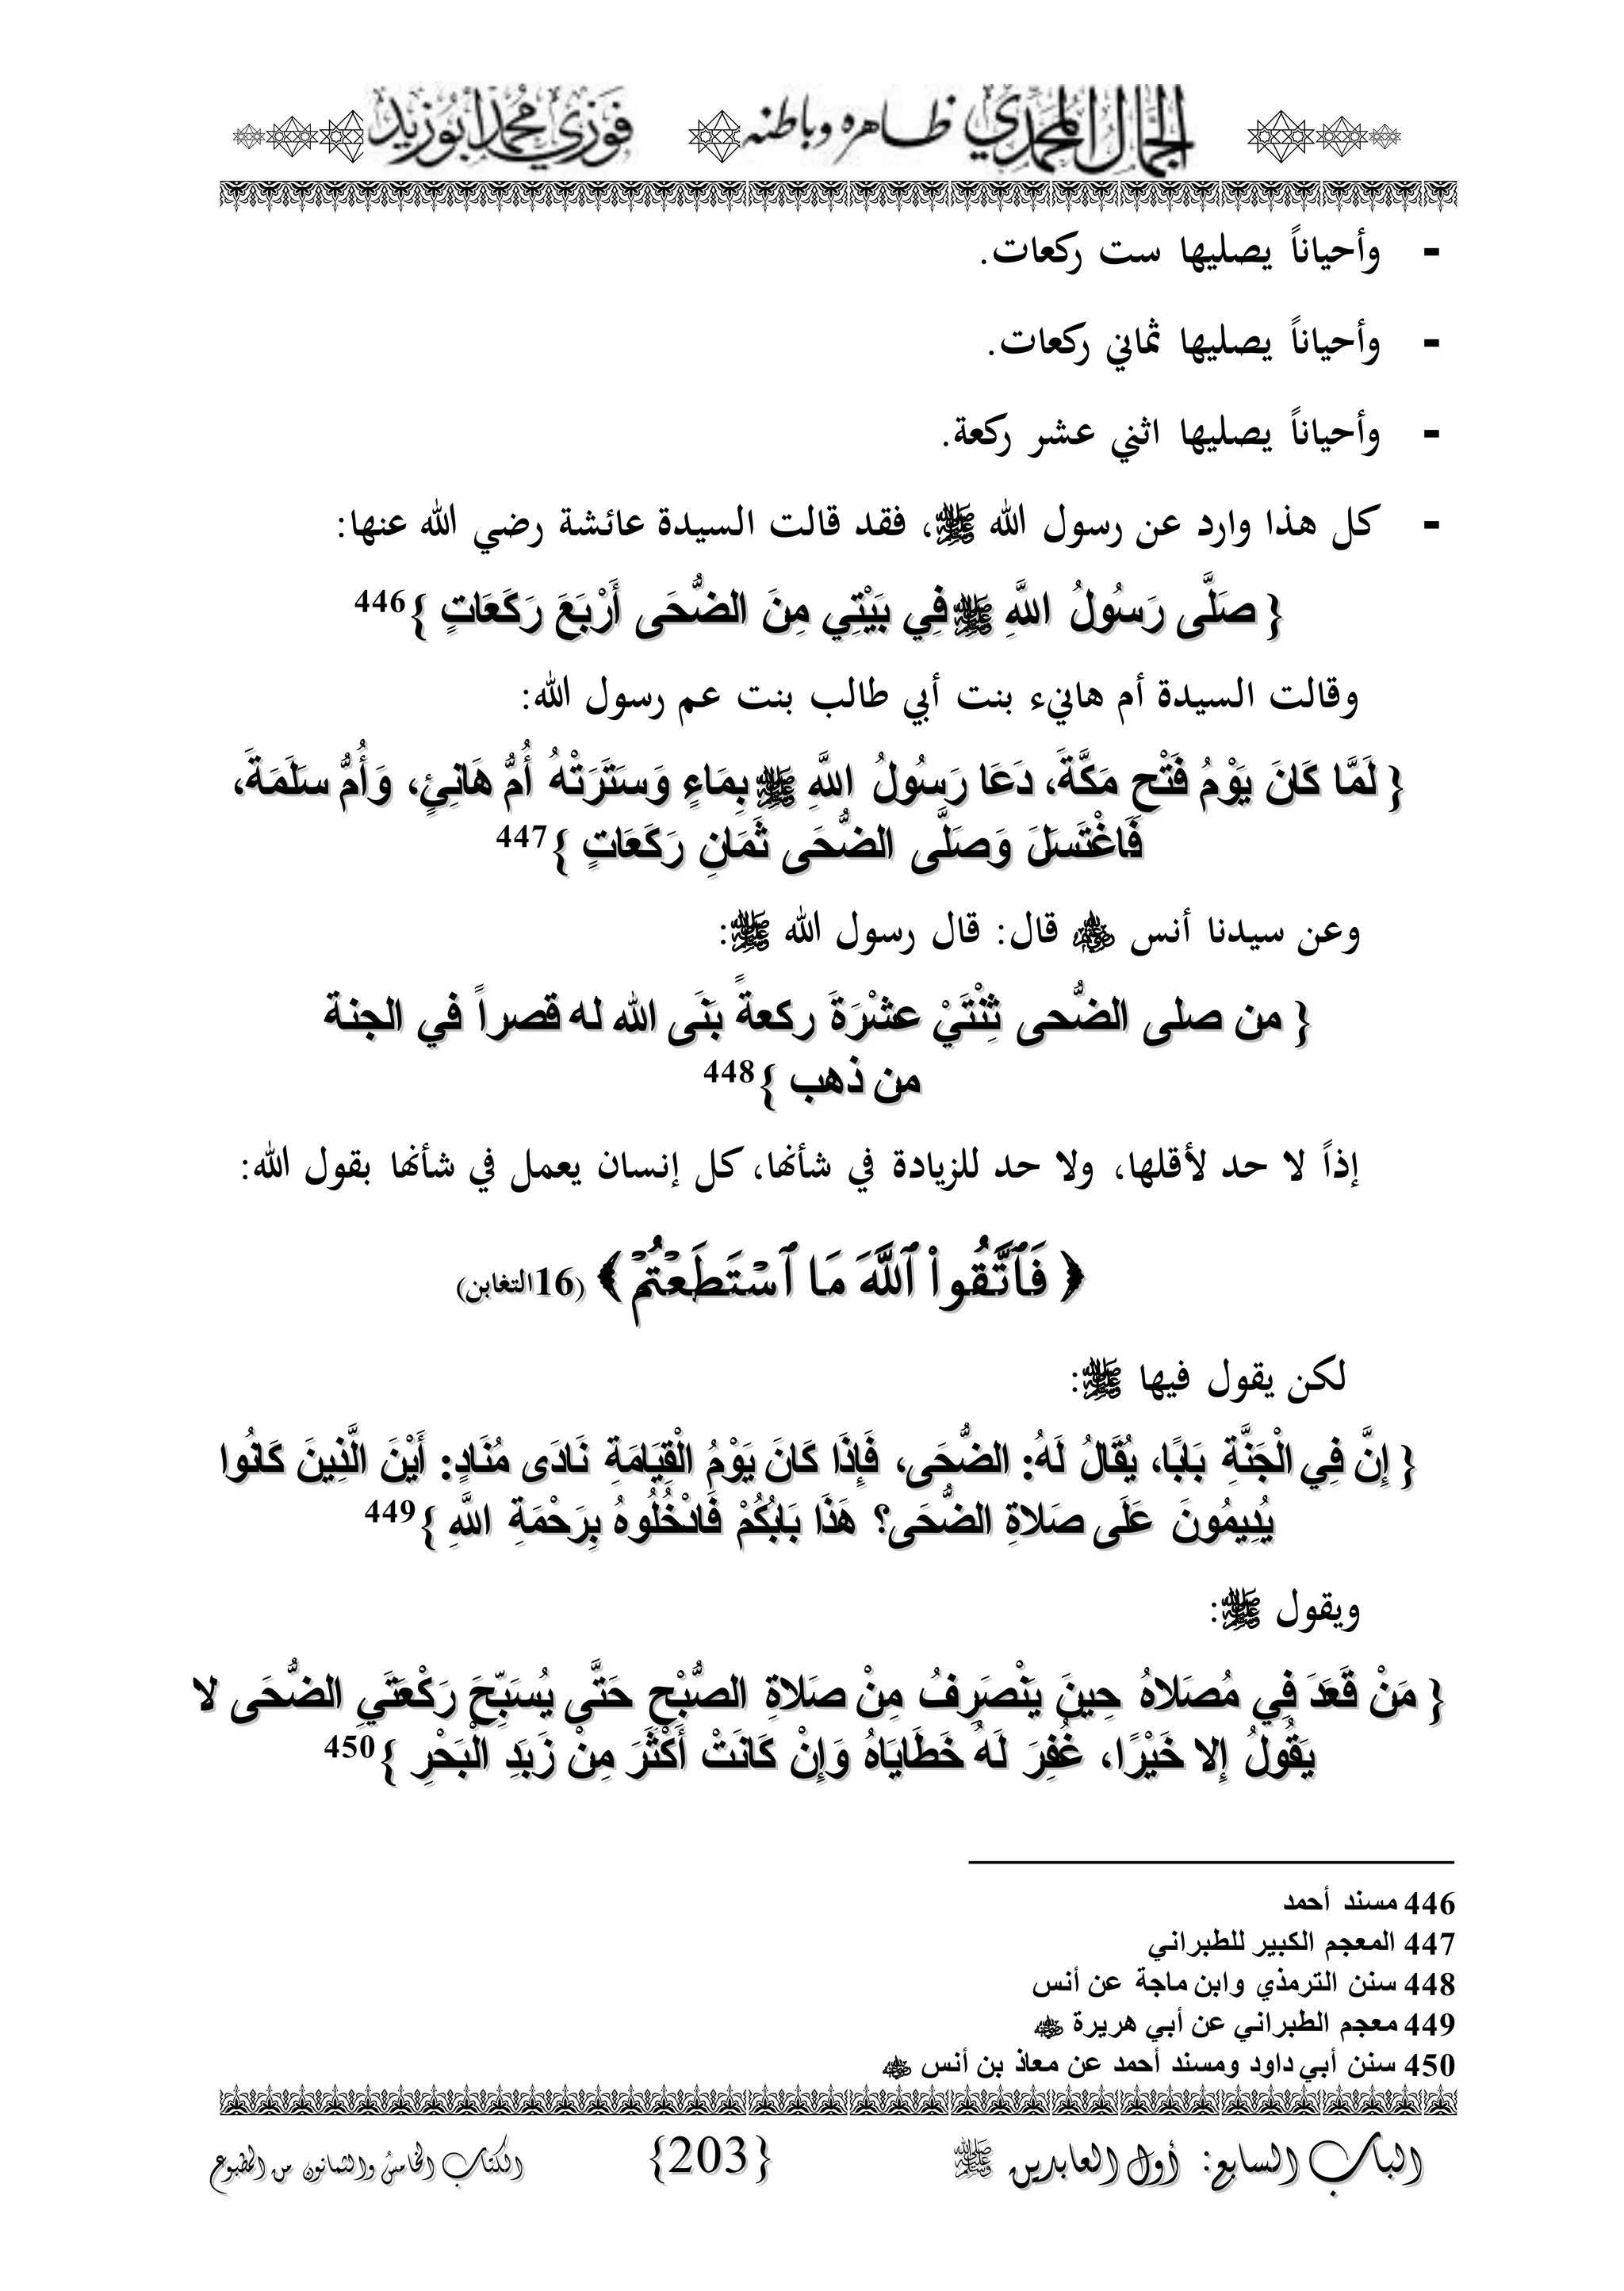 الجمال المحمدي ظاهره وباطنه فوزي محمد أبوزيد
- وأحياناً يصليها ست ركعات.
- وأحياناً يصليها ثماني ركعات.
- وأحياناً يصليها اثني عشر ركعة.
- كل هذا وارد عن رسول الله ﷺ، فقد قالت السيدة عائشة رضي الله عنها:
{ صَلَّى رَسُولُ اللَّهِ ﷺ فِي بَيْتِي مِنَ الضُّحَى أَرْبَعَ رَكَعَاتٍ }446
وقالت السيدة أم هانيء بنت أبي طالب بنت عم رسول الله:
{ لَمَّا كَانَ يَوْمُ فَتْحِ مَكَّةَ، دَعَا رَسُولُ اللَّهِ ﷺ بِمَاءٍ وَسَتَرَتْهُ أُمُّ هَانِئٍ، وَأُمُّ سَلَمَةَ،
فَاغْتَسَلَ وَصَلَّى الضُّحَى ثَمَانِ رَكَعَاتٍ }447
وعن سيدنا أنس رضي الله عنه قال: قال رسول الله ﷺ:
{ من صلى الضُّحى ثِنْتَيْ عشْرَةَ ركعةً بَنَى الله له قصراً في الجنة
من ذهب }448
إذاً لا حد لأقلها، ولا حد للزيادة في شأنها، كل إنسان يعمل في شأنها بقول الله:
﴿ فَٱتَّقُوا۟ ٱللَّهَ مَا ٱسْتَطَعْتُمْ ﴾ (16التغابن)
لكن يقول فيها ﷺ:
{ إِنَّ فِي الْجَنَّةِ بَابًا، يُقَالُ لَهُ: الضُّحَى، فَإِذَا كَانَ يَوْمُ الْقِيَامَةِ نَادَى مُنَادٍ: أَيْنَ الَّذِينَ كَانُوا
يُدِيمُونَ عَلَى صَلاةِ الضُّحَى؟ هَذَا بَابُكُمْ فَادْخُلُوهُ بِرَحْمَةِ اللَّهِ }449
ويقول ﷺ:
{ مَنْ قَعَدَ فِي مُصَلاهُ حِينَ يَنْصَرِفُ مِنْ صَلاةِ الصُّبْحِ حَتَّى يُسَبِّحَ رَكْعَتَيِ الضُّحَى لا
يَقُولُ إِلا خَيْرًا، غُفِرَ لَهُ خَطَايَاهُ وَإِنْ كَانَتْ أَكْثَرَ مِنْ زَبَدِ الْبَحْرِ }450
446 مسند أحمد
447 المعجم الكبير للطبراني
448 سنن الترمذي وابن ماجة عن أنس
449 معجم الطبراني عن أبي هريرة رضي الله عنه
450 سنن أبي داود ومسند أحمد عن معاذ بن أنس رضي الله عنه
الباب السابع: أول العابدين ﷺ {203} الكتاب الخامس والثمانون من المطبوع